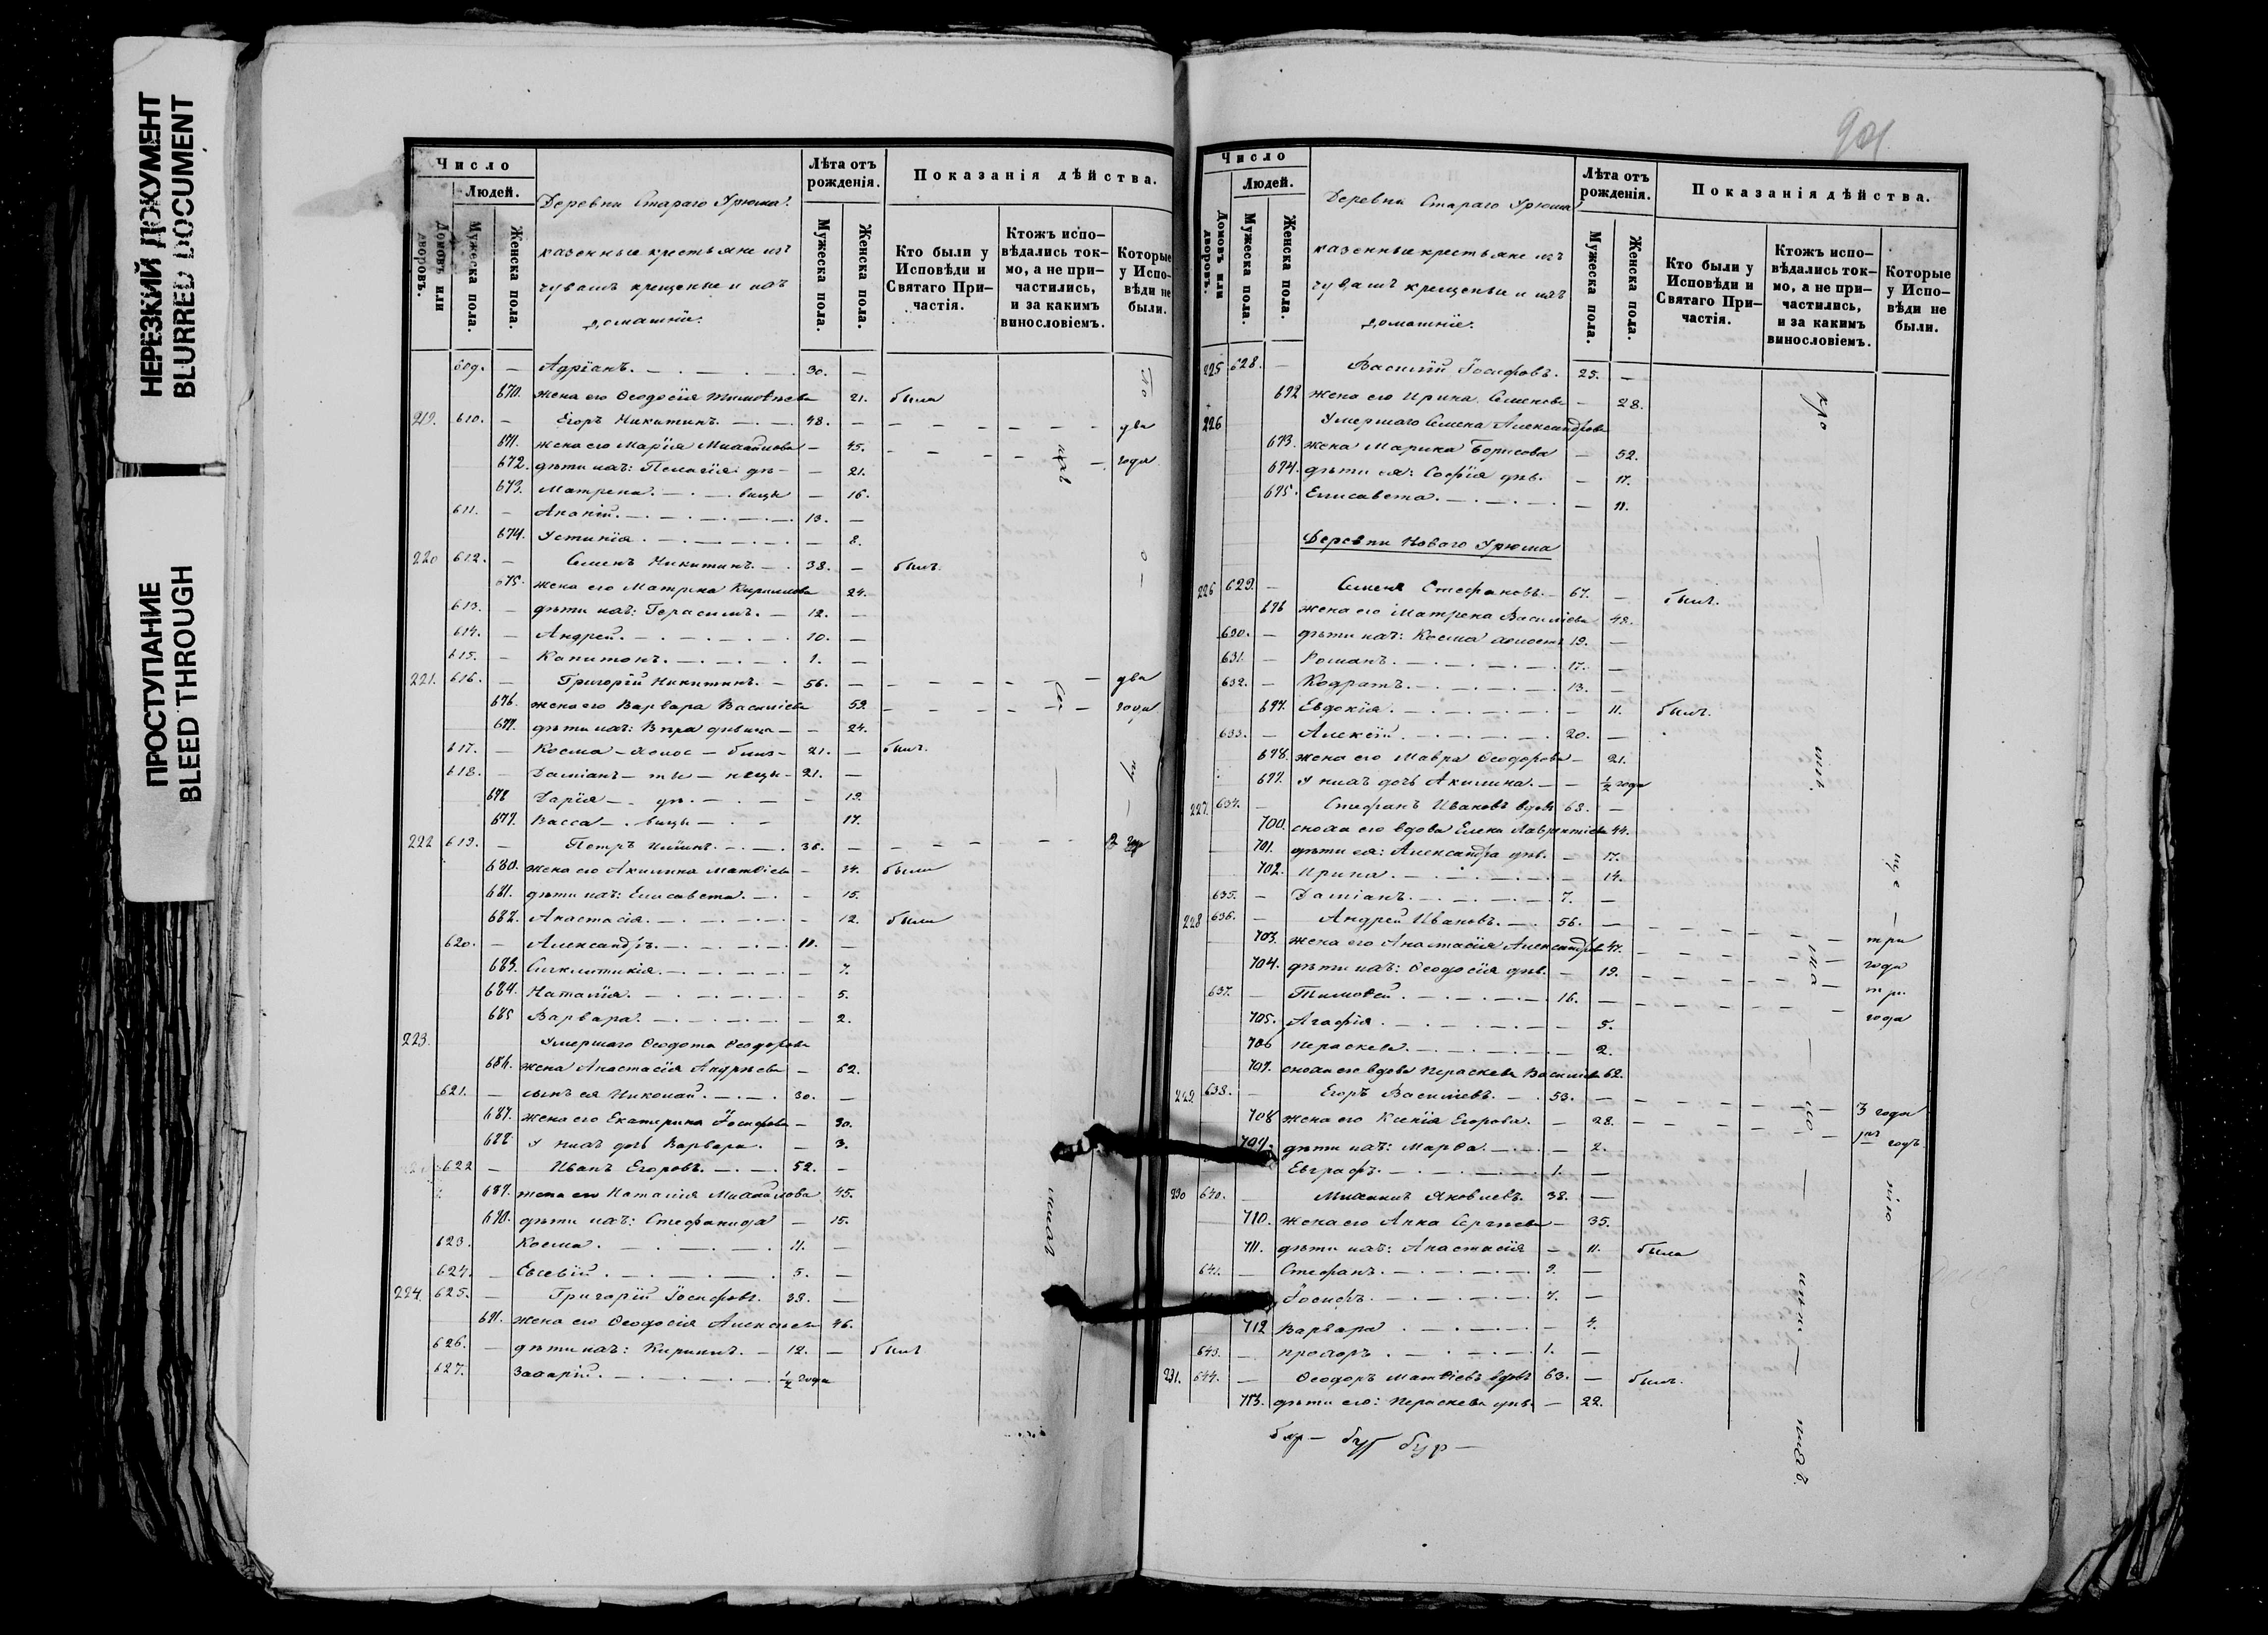 НЕРЕЗКИЙ ДОКУМЕНТ
BLURRED DOCUMENT
ПРОСТУПАНИЕ
BLEED THROUGH
Число
Людей.
Домовъ или дворовъ.
Мужеска пола.
Женска пола.
Деревни Стараго Урюма
казенные крестьяне изъ
чувашъ крещеные и ихъ
домашніе.
Лѣта отъ рожденія.
Мужеска пола.
Женска пола.
Показанія дѣйства.
Кто были у Исповѣди и Святаго Причастія.
Ктожъ исповѣдались токмо, а не причастились, и за какимъ винословіемъ.
Которые у Исповѣди не были.
609. — Адріанъ. 30. —
670. жена его Ѳеодосія Тимоѳеева 21. была
219. 610. — Егоръ Никитинъ. 48. — два
671. жена его Марія Михайлова — 45. года
672. дѣти ихъ: Пелагія дѣ- — 21.
673. Матрена. вицы — 16.
611. — Ананій. 13. —
674. Устинія. — 8.
220 612. — Семенъ Никитинъ. 38. — былъ.
675. жена его Матрена Кириллова 24.
613. — дѣти ихъ: Герасимъ. 12. —
614. — Андрей. 10. —
615. — Капитонъ. 1. —
221. 616. — Григорій Никитинъ. 56. — два
676. жена его Варвара Василіева 59. года
677. дѣти ихъ: Вѣра дѣвица — 24.
617. — Косма — холос — близ- 21. — былъ.
618. — Даміанъ — ты — нецы 21. —
678 Дарія — дѣ. — 19.
679. Васса — вицы — 17.
222 619. — Петръ Ильинъ. 36. —
680. жена его Акилина Матвіева — 34. были
681. дѣти ихъ: Елисавета. — 15.
682. Анастасія. — 12. были
620. — Александръ. 11. —
683. Синклитикія. — 7.
684. Наталія. — 5.
685 Варвара. — 2.
223. Умершаго Ѳеодота Ѳеодорова
686. жена Анастасія Андреева — 62.
621. — сынъ ея Николай. 30. —
687. жена его Екатерина Іосифова — 30.
688. У нихъ дочь Варвара. — 3.
622 — Иванъ Егоровъ. 52. —
689. жена его Наталія Михайлова 45.
690. дѣти ихъ: Стефанида — 15.
623. Косма. 11. —
624. — Евсевій. 5. —
224. 625. — Григорій Іосифовъ. 39. —
691. жена его Ѳеодосія Алексѣева 46.
626. — дѣти ихъ: Кириллъ. 12. — былъ
627. Захарій. ½ года
Число
Людей.
Домовъ или дворовъ.
Мужеска пола.
Женска пола.
Деревни Стараго Урюма
казенные крестьяне изъ
чувашъ крещеные и ихъ
домашніе.
Лѣта отъ рожденія.
Мужеска пола.
Женска пола.
Показанія дѣйства.
Кто были у Исповѣди и Святаго Причастія.
Ктожъ исповѣдались токмо, а не причастились, и за какимъ винословіемъ.
Которые у Исповѣди не были.
225 628. — Василій Іосифовъ. 25. —
692 жена его Ирина Семенова — 28.
226 Умершаго Семена Александрова
693. жена Марина Борисова — 52.
694. дѣти ея: Софія дѣв. — 17.
695. Елисавета. — 11.
Деревни Новаго Урюма
226 629. — Семенъ Стефановъ. 67. — былъ.
696 жена его Матрена Василіева 48.
630. — дѣти ихъ: Косма холостъ 19. —
631. — Романъ. 17. —
632. — Кодратъ. 13. —
697. Евдокія. — 11. былъ.
633. — Алексій. 20. —
698. жена его Мавра Ѳеодорова — 21.
699. У нихъ дочь Акилина. — ½ года
227. 634. — Стефанъ Ивановъ вдовъ 68. —
700. сноха его вдова Елена Лаврентіева 44.
701. дѣти ея: Александра дѣв. — 17.
702. Ирина. — 14.
635. — Даміанъ. 7. —
228 636. — Андрей Ивановъ. 56. — три
703. жена его Анастасія Александрова 47. года
704. дѣти ихъ: Ѳеодосія дѣв. — 19. три
637. — Тимоѳей. 16. — года
705. Агафія. — 5.
706 Параскева. — 2.
707. сноха его вдова Параскева Василіева 62.
229. 638. — Егоръ Василіевъ. 53. — 3 года
708 жена его Ксенія Егорова. — 28. годъ
709. дѣти ихъ: Марѳа. — 2.
Евграфъ. 1. —
230 640. — Михаилъ Яковлевъ. 38. —
710. жена его Анна Сергѣева — 35.
711. дѣти ихъ: Анастасія — 11. была
641. — Стефанъ. 9. —
Іосифъ. 7. —
712 Варвара. — 4.
643. — Прохоръ. 1. —
231. 644. — Ѳеодоръ Матвіевъ вдовъ 63. — былъ.
713. дѣти его: Параскева дѣв. — 22.